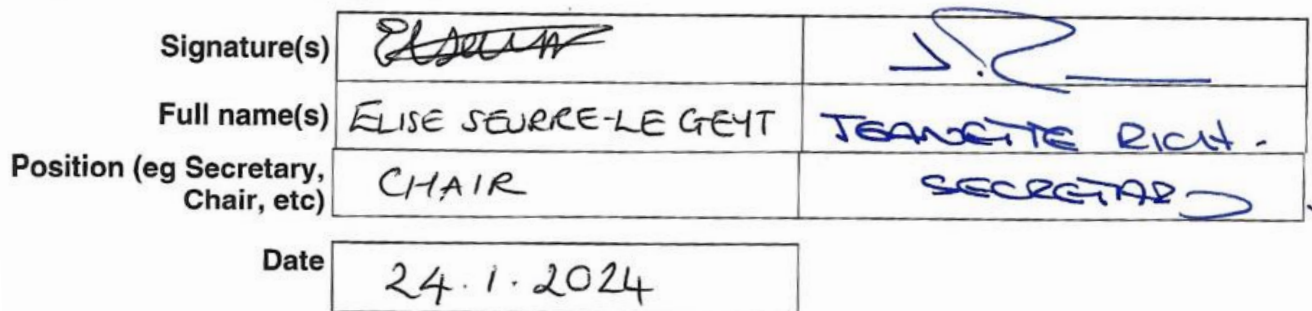 Signature(s)
Full name(s) ELISE SEURRE-LE GEYT JEANETTE RICH.
Position (eg Secretary, Chair, etc) CHAIR SECRETARY
Date 24.1.2024